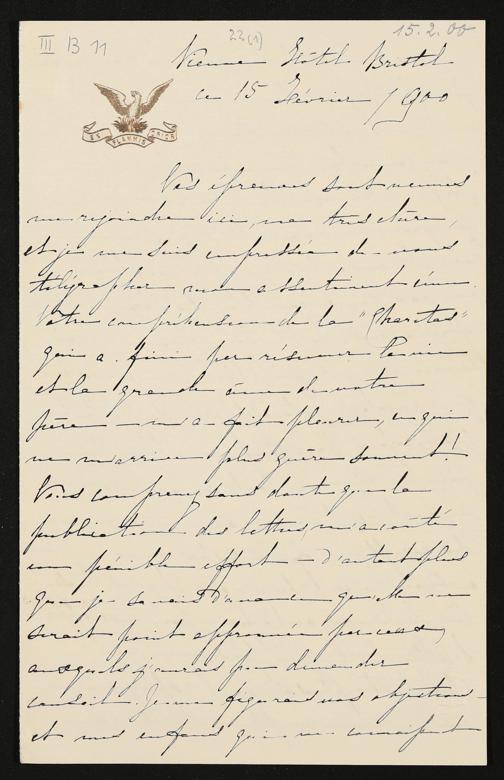 III B 11
22(1)
15.2.00
Vienne Hôtel Bristol
ce 15 Février 1900
EX FLAMMIS ORIOR
Vos épreuves sont venues
me rejoindre ici, ma très chère,
et je me suis empressée de vous
télégraphier mon assentiment ému.
Votre compréhension de la "Charitas"
qui a fini par résumer la vie
et la grande âme de votre
père — m'a fait pleurer, ce qui
ne m'arrive plus guère souvent!
Vous comprenez sans doute que la
publication des lettres, m'a coûté
un pénible effort — d'autant plus
que je savais d'avance qu'elle ne
serait point approuvée par ceux
auxquels j'aurais pu demander
conseil. Je me figurais vos objections
et mes enfants qui me connaissent